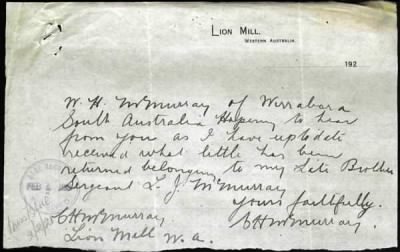 LION MILL.
WESTERN AUSTRALIA.
192
W. H. McMurray of Wirrabara
South Australia Hopeing to hear
from you as I have uptodate
received what little has been
returned belonging to my Late Brother
Sergeant L. J. McMurray
Yours faithfully.
CHMcMurray CHMcMurray.
Lion Mill W. A.
FEB